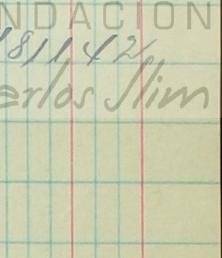 NDACION
181142
arlos Slim